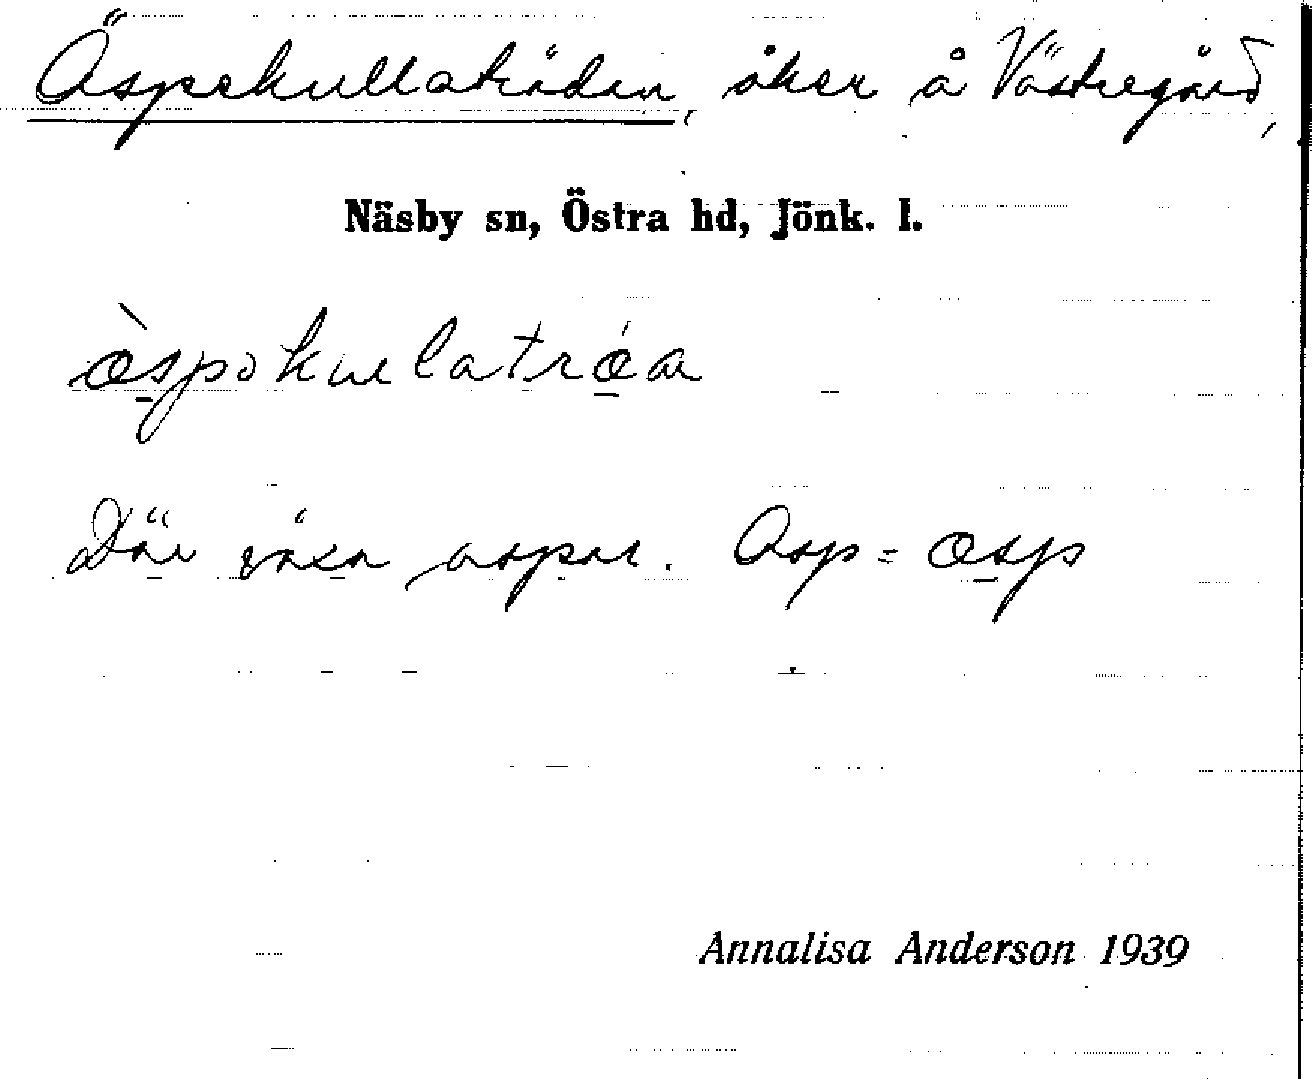 Äspekullaträden, åker å Västregård,
Näsby sn, Östra hd, Jönk. l.
æ̀spokulatrǽa
Där växa aspar. Asp = æsp
Annalisa Anderson 1939